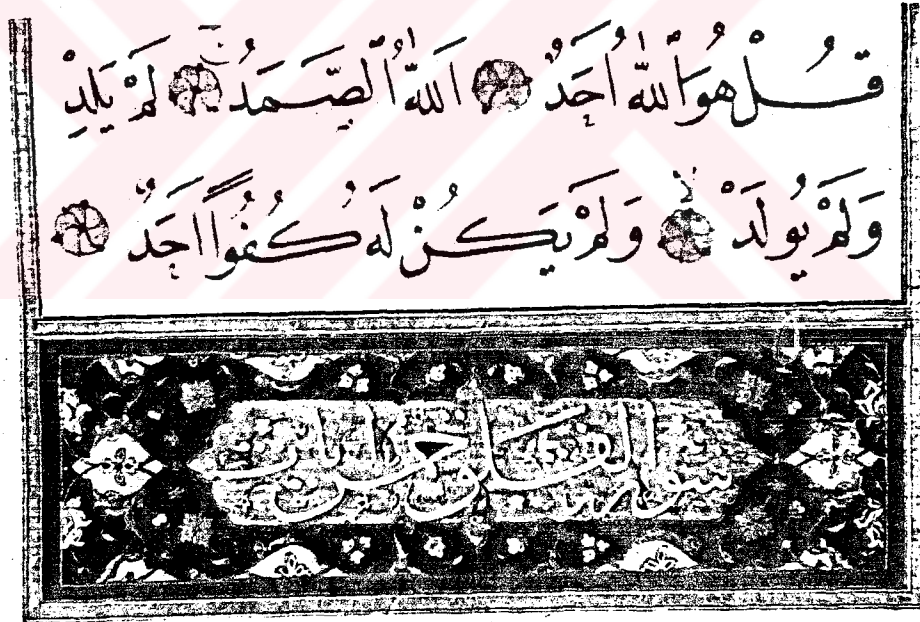 قُلْ هُوَ اللّٰهُ اَحَدٌ اَللّٰهُ الصَّمَدُ لَمْ يَلِدْ
وَلَمْ يُولَدْ وَلَمْ يَكُنْ لَهُ كُفُوًا اَحَدٌ
سورة الفلق خمس ايات